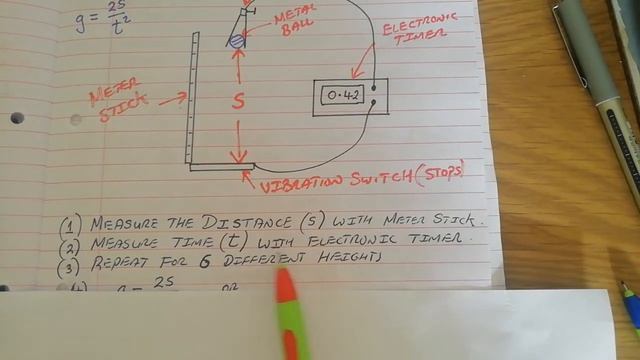 g = 2S/t²
METAL BALL
ELECTRONIC TIMER
METER STICK
S
0.42
VIBRATION SWITCH (STOPS)
(1) MEASURE THE DISTANCE (S) WITH METER STICK.
(2) MEASURE TIME (t) WITH ELECTRONIC TIMER.
(3) REPEAT FOR 6 DIFFERENT HEIGHTS